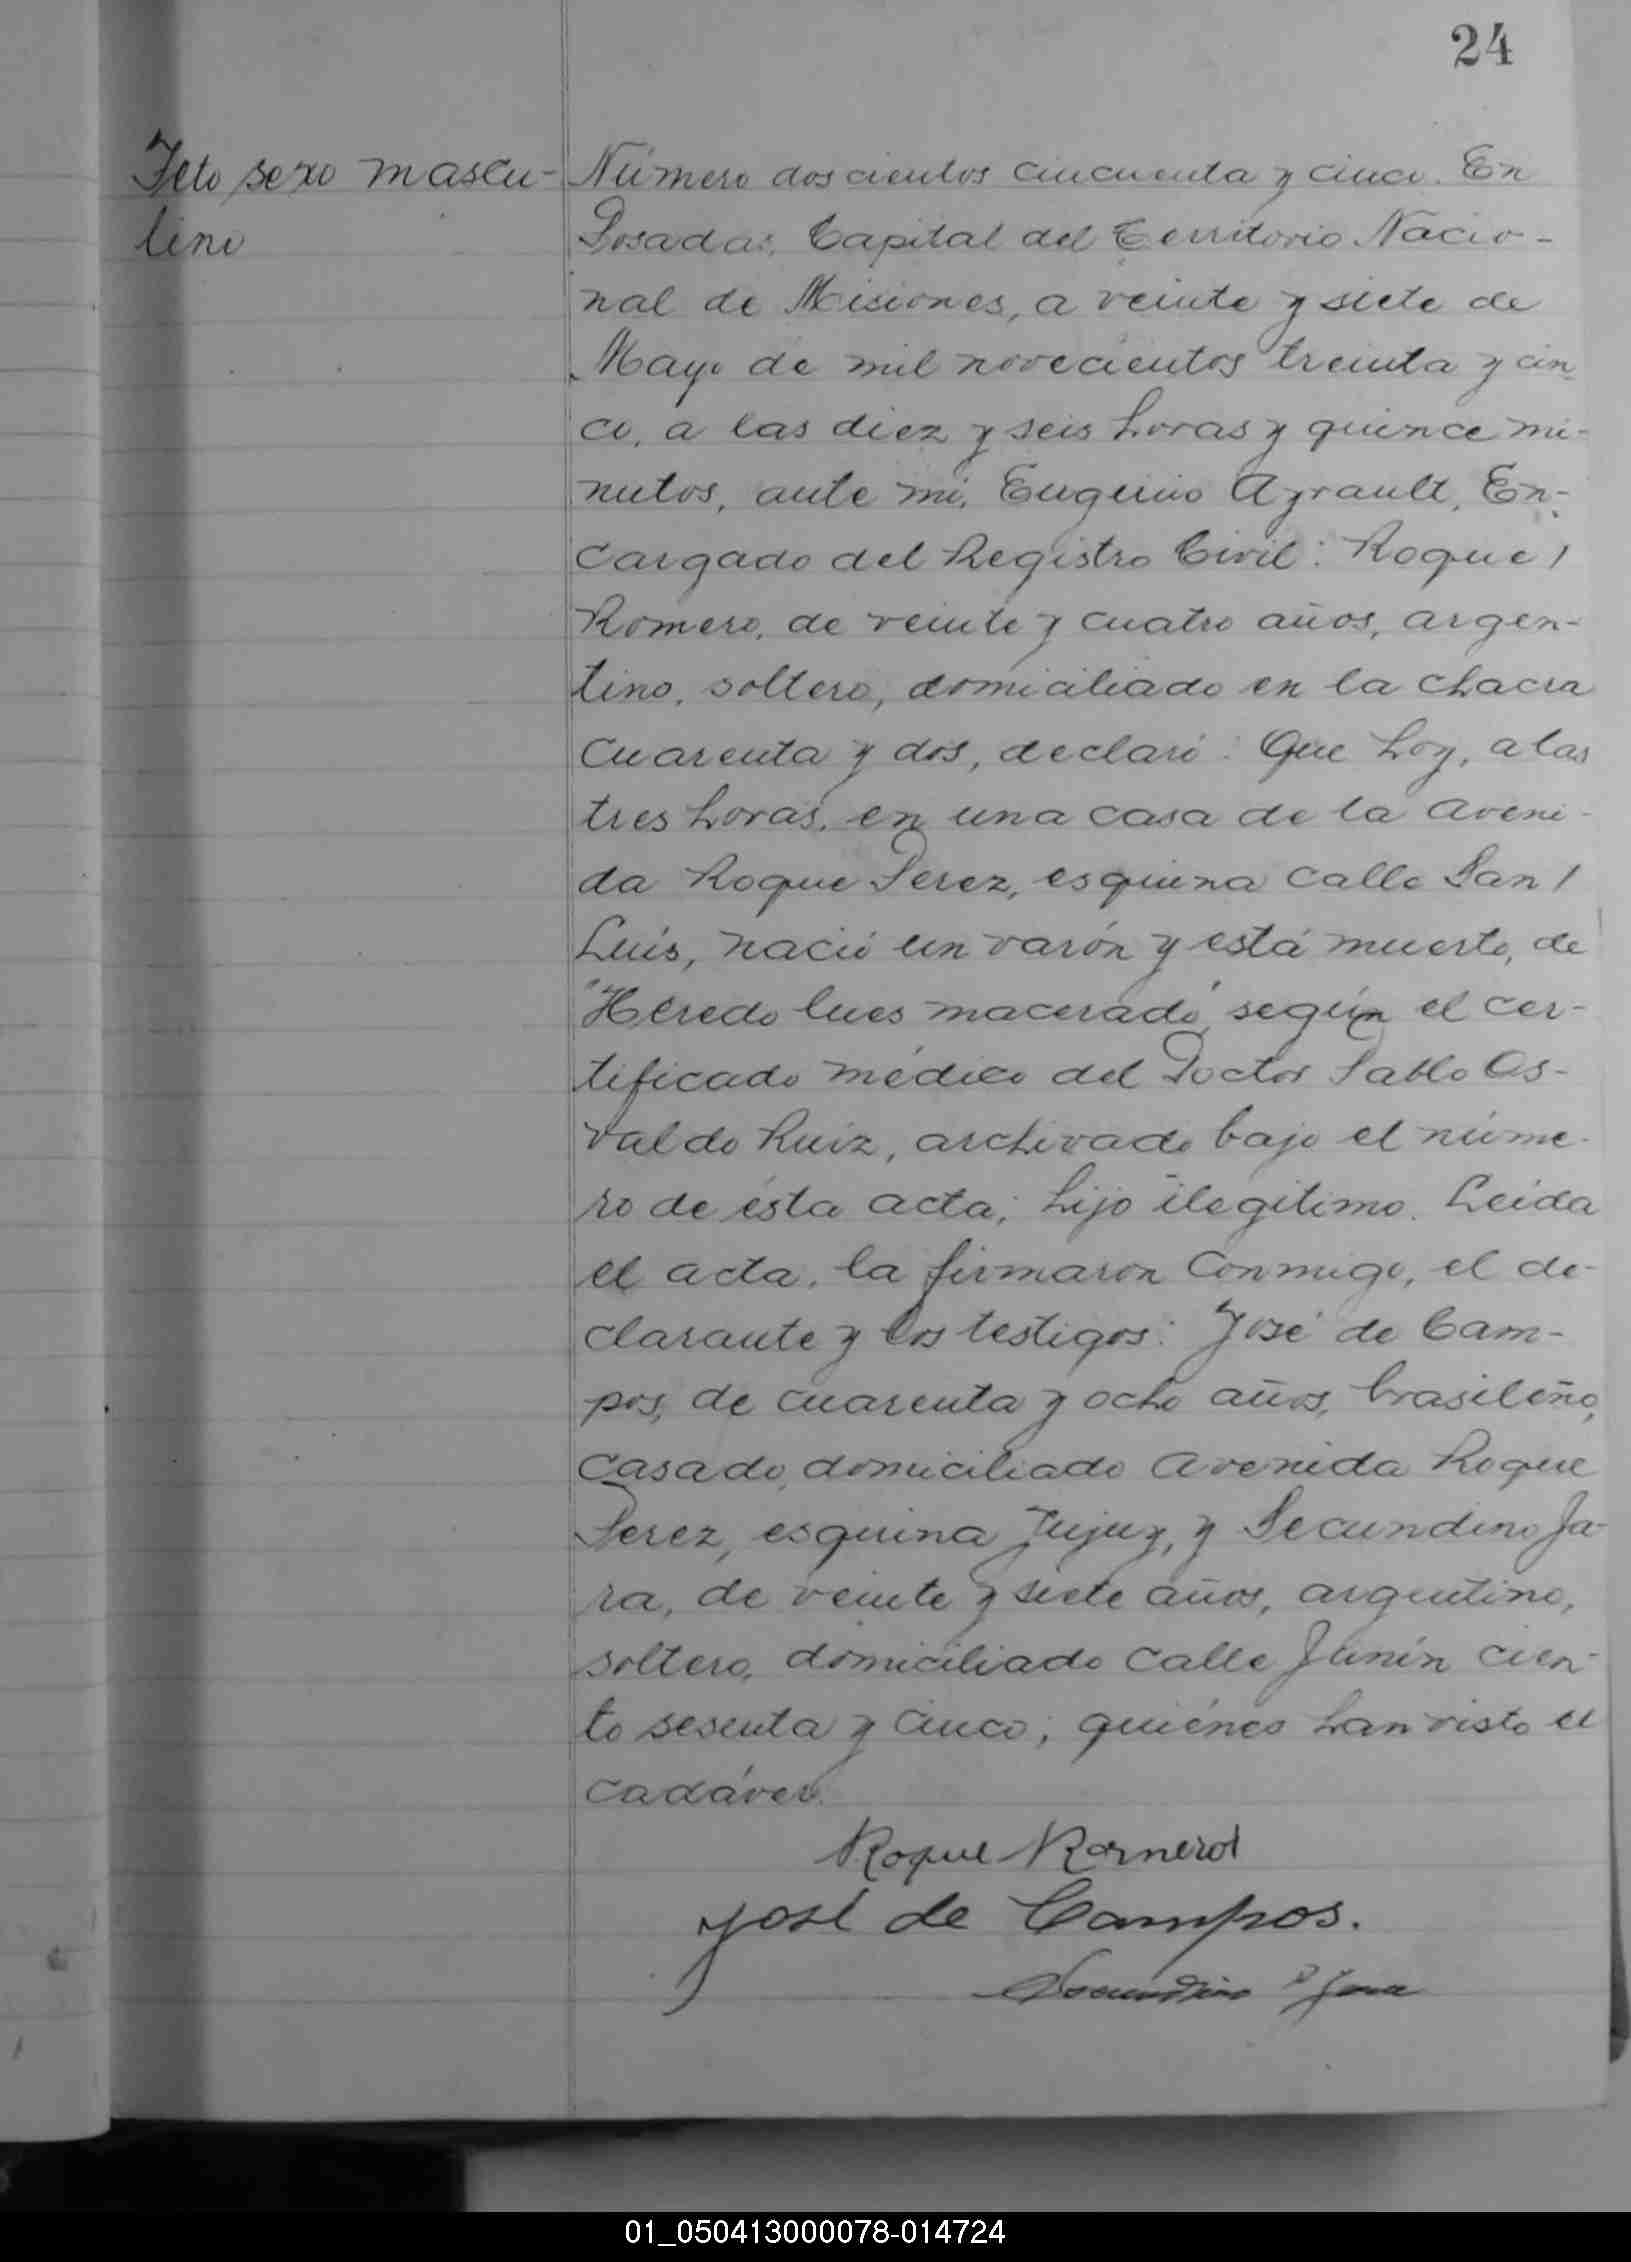 24
Feto sexo mascu-
lino
Número doscientos cincuenta y cinco. En
Posadas, Capital del Territorio Nacio-
nal de Misiones, a veinte y siete de
Mayo de mil novecientos treinta y cin-
co, a las diez y seis horas y quince mi-
nutos, ante mí, Eugenio Ayrault, En-
cargado del Registro Civil: Roque /
Romero, de veinte y cuatro años, argen-
tino, soltero, domiciliado en la chacra
cuarenta y dos, declaró: Que hoy, a las
tres horas, en una casa de la Aveni-
da Roque Perez, esquina calle San /
Luis, nació un varón y está muerto, de
"Heredo lues macerado", según el cer-
tificado médico del Doctor Pablo Os-
valdo Ruiz, archivado bajo el núme-
ro de ésta acta; hijo ilegítimo. Leida
el acta, la firmaron conmigo, el de-
clarante y los testigos: José de Cam-
pos, de cuarenta y ocho años, brasileño,
casado, domiciliado Avenida Roque
Perez, esquina Jujuy, y Secundino Ja-
ra, de veinte y siete años, argentino,
soltero, domiciliado calle Junín cien-
to sesenta y cinco; quiénes han visto el
cadáver.
Roque Romero
José de Campos.
Secundino Jara
01_050413000078-014724